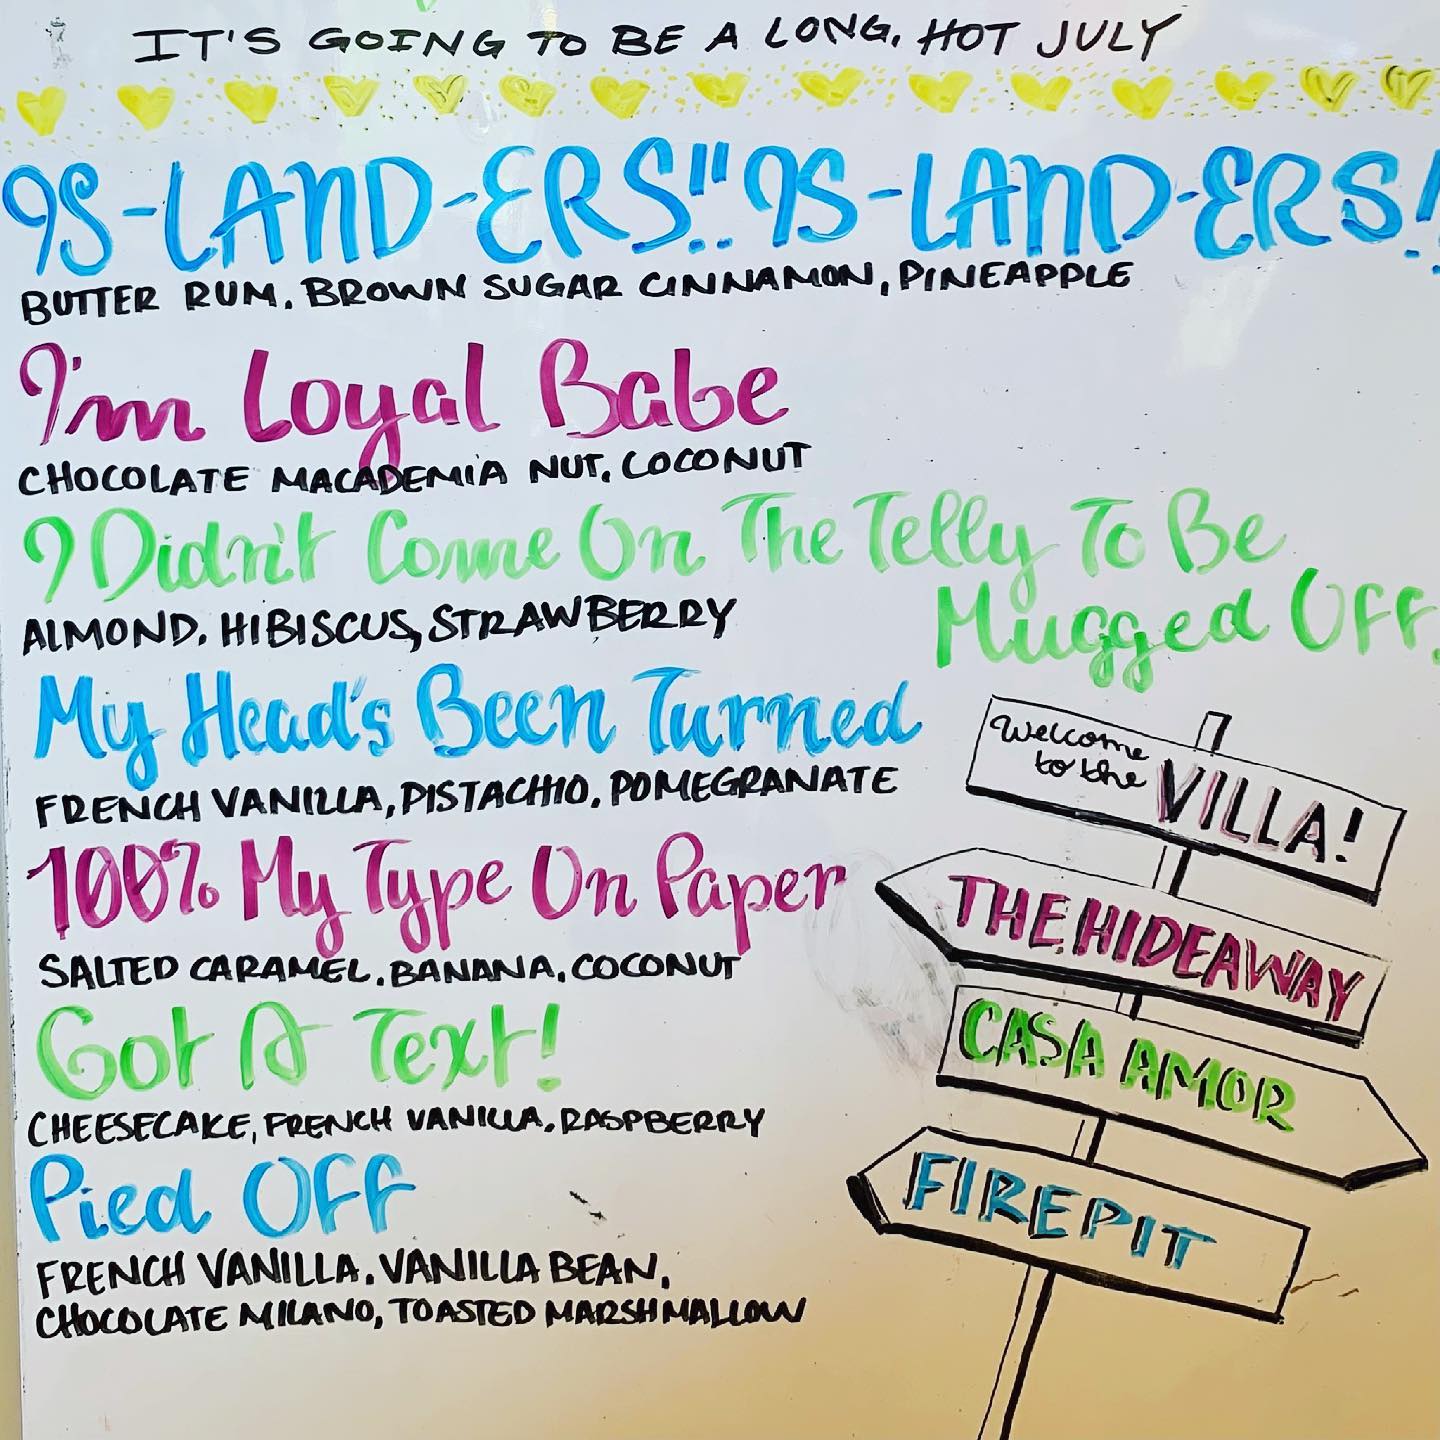 IT'S GOING TO BE A LONG, HOT JULY
IS-LAND-ERS!! IS-LAND-ERS!!
BUTTER RUM, BROWN SUGAR CINNAMON, PINEAPPLE
I'm Loyal Babe
CHOCOLATE MACADEMIA NUT, COCONUT
I Didn't Come On The Telly To Be
Mugged Off.
ALMOND, HIBISCUS, STRAWBERRY
My Head's Been Turned
FRENCH VANILLA, PISTACHIO, POMEGRANATE
100% My Type On Paper
SALTED CARAMEL, BANANA, COCONUT
Got A Text!
CHEESECAKE, FRENCH VANILLA, RASPBERRY
Pied Off
FRENCH VANILLA, VANILLA BEAN,
CHOCOLATE MILANO, TOASTED MARSHMALLOW
Welcome
to the VILLA!
THE HIDEAWAY
CASA AMOR
FIREPIT